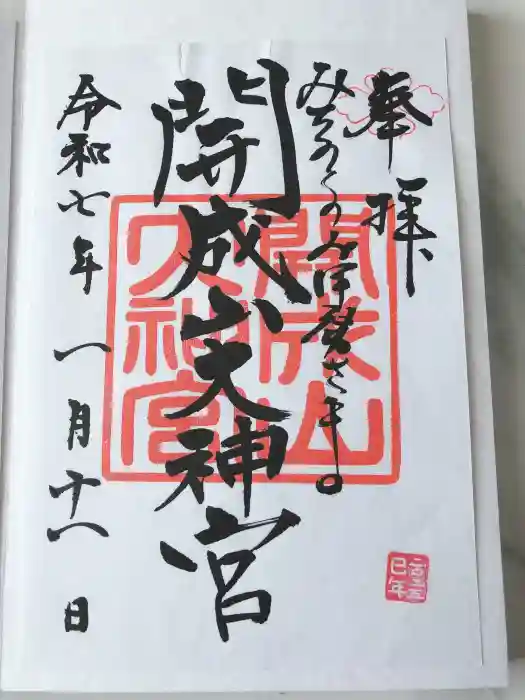 奉拝
みちのくのお伊勢さま
開成山大神宮
令和七年一月十八日
開成山大神宮
二〇二五
巳年